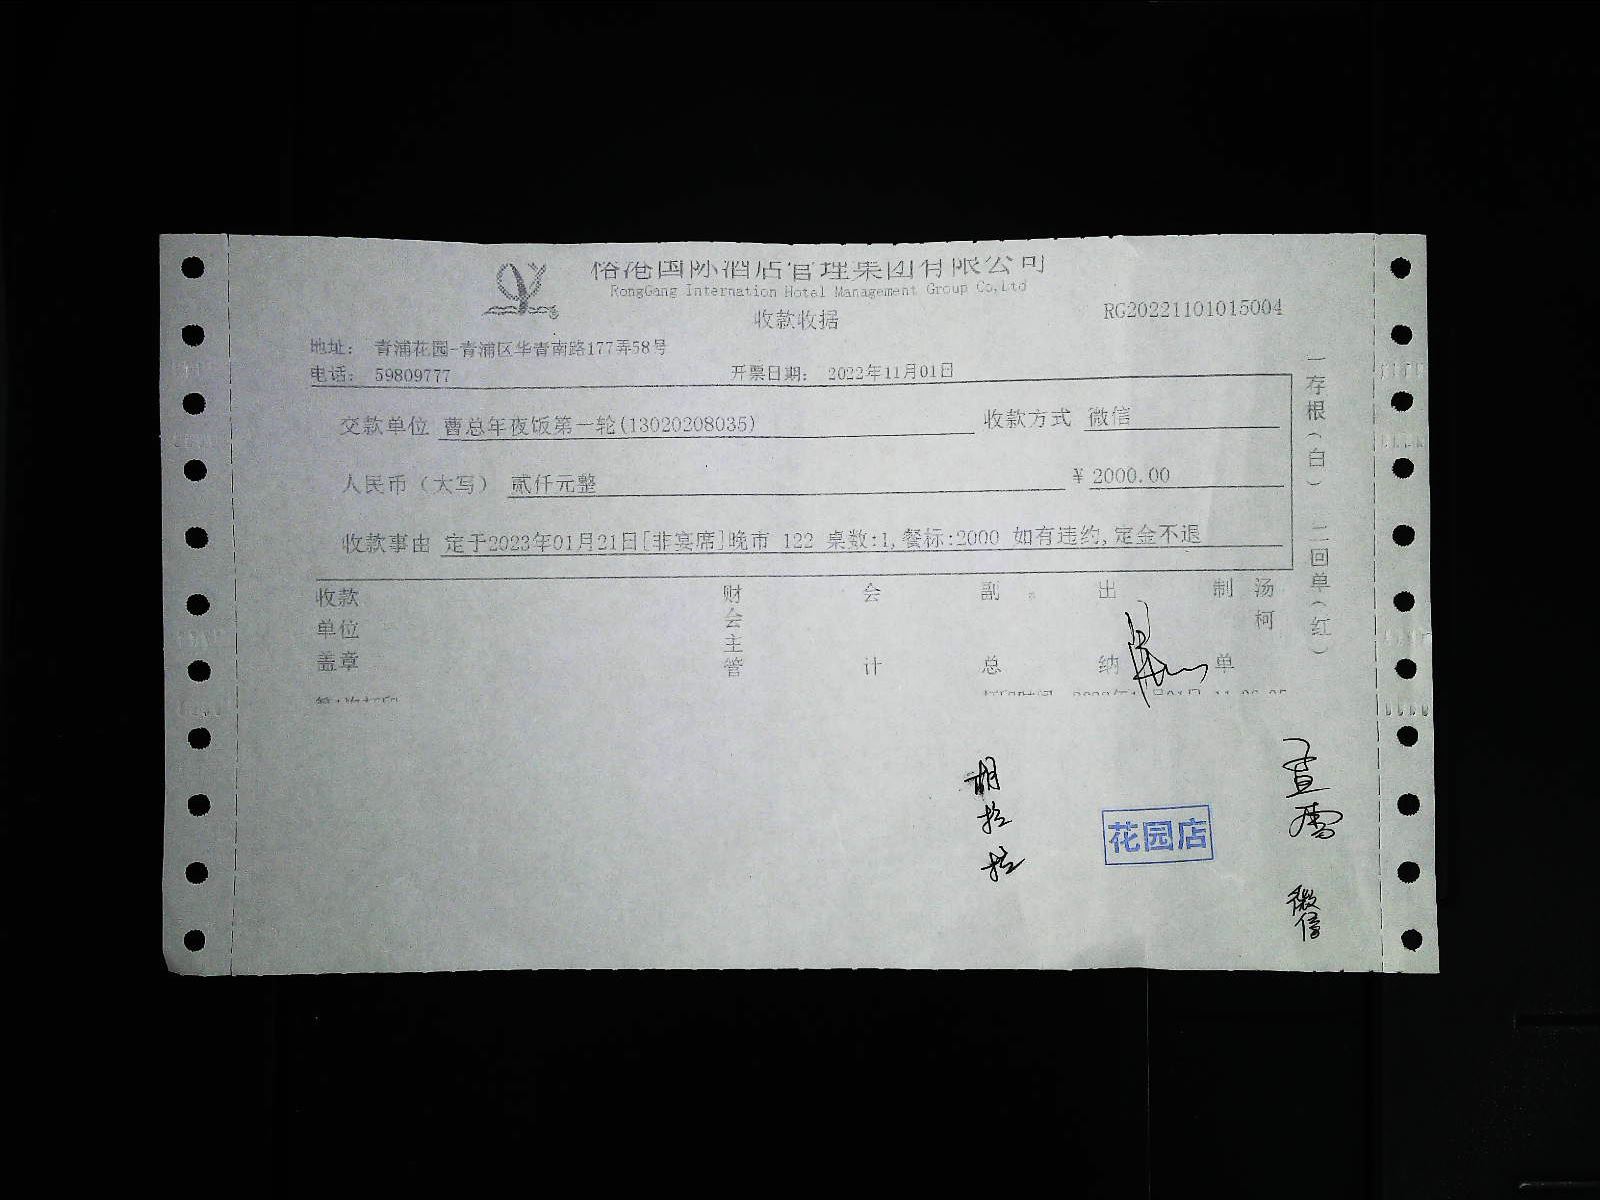 榕港国际酒店管理集团有限公司
RongGang Internation Hotel Management Group Co,Ltd
收款收据
RG20221101015004
地址： 青浦花园-青浦区华青南路177弄58号
电话： 59809777
开票日期： 2022年11月01日
交款单位 曹总年夜饭第一轮(13020208035)
收款方式 微信
人民币（大写） 贰仟元整
¥ 2000.00
收款事由 定于2023年01月21日[非宴席]晚市 122 桌数:1,餐标:2000 如有违约,定金不退
一存根（白） 二回单（红）
收款单位盖章
财会主管
会计
副总
出纳
制单
汤柯
胡拉拉
花园店
微信